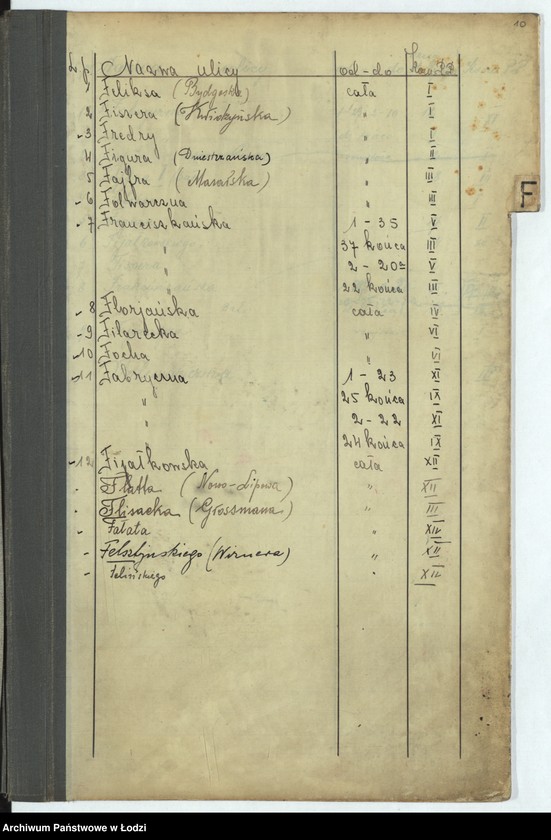 10
L.p. Nazwa ulicy od-do
1 Feliksa (Bydgoska) cała I
2 Fissera (Kwidzyńska) " I
3 Fredry " I
4 Figura (Dniestrzańska) " II
5 Fajfra (Masarska) " III
6 Folwarczna " III
7 Franciszkańska 1-35 V
" 37 końca III
" 2-20a V
" 22 końca III
8 Florjańska cała IV
9 Filarecka " VI
10 Focha " VI
11 Fabryczna 1-23 XI
" 25 końca IX
" 2-22 XI
" 24 końca IX
12 Fijałkowska cała XII
Flatta (Nowo-Lipowa) " XII
Flisacka (Grossmana) " III
Fałata " XIV
Felsztyńskiego (Wirnera) " XII
Felińskiego " XIV
F
Archiwum Państwowe w Łodzi